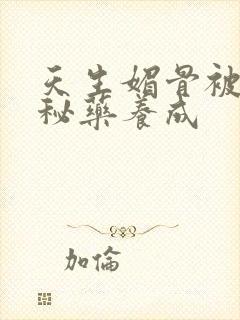 天生媚骨被
秘藥養成
加倫